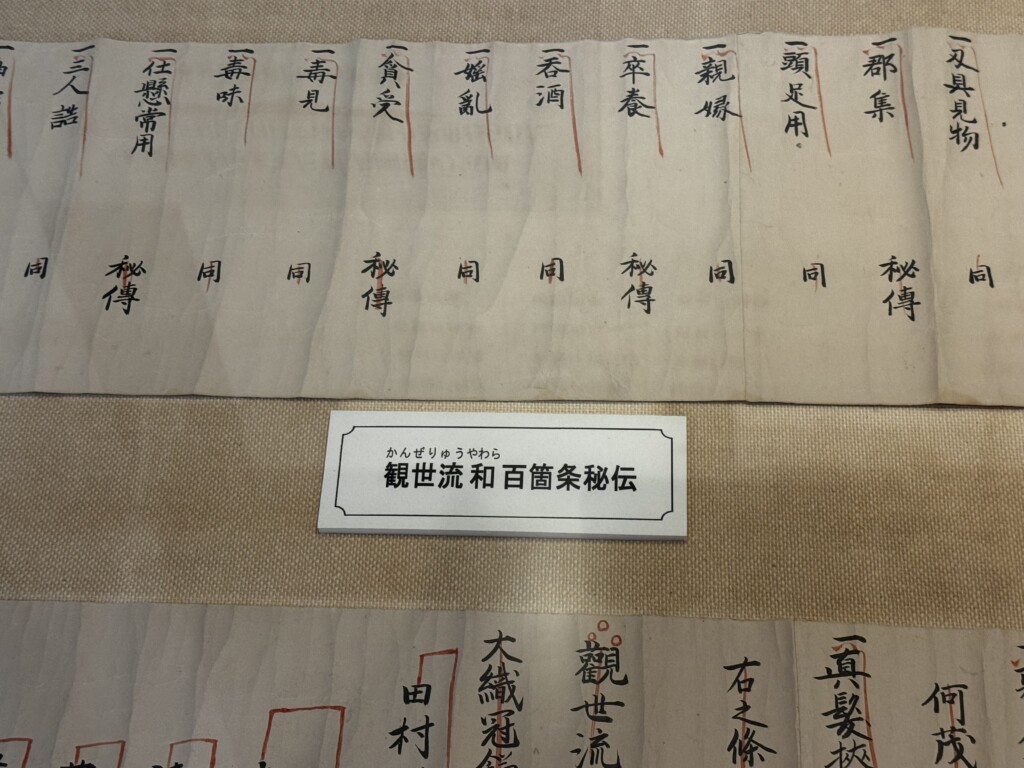 一刄具見物
同
一郡集
秘傳
一頭足用
同
一親嫁
同
一卒養
秘傳
一呑酒
同
一婬亂
同
一貪受
秘傳
一毒見
同
一毒味
同
一仕懸常用
秘傳
一三人詰
同
かんぜりゅうやわら
観世流 和 百箇条秘伝
何茂
一真髪挾
右之條
觀世流
大織冠鎌
田村